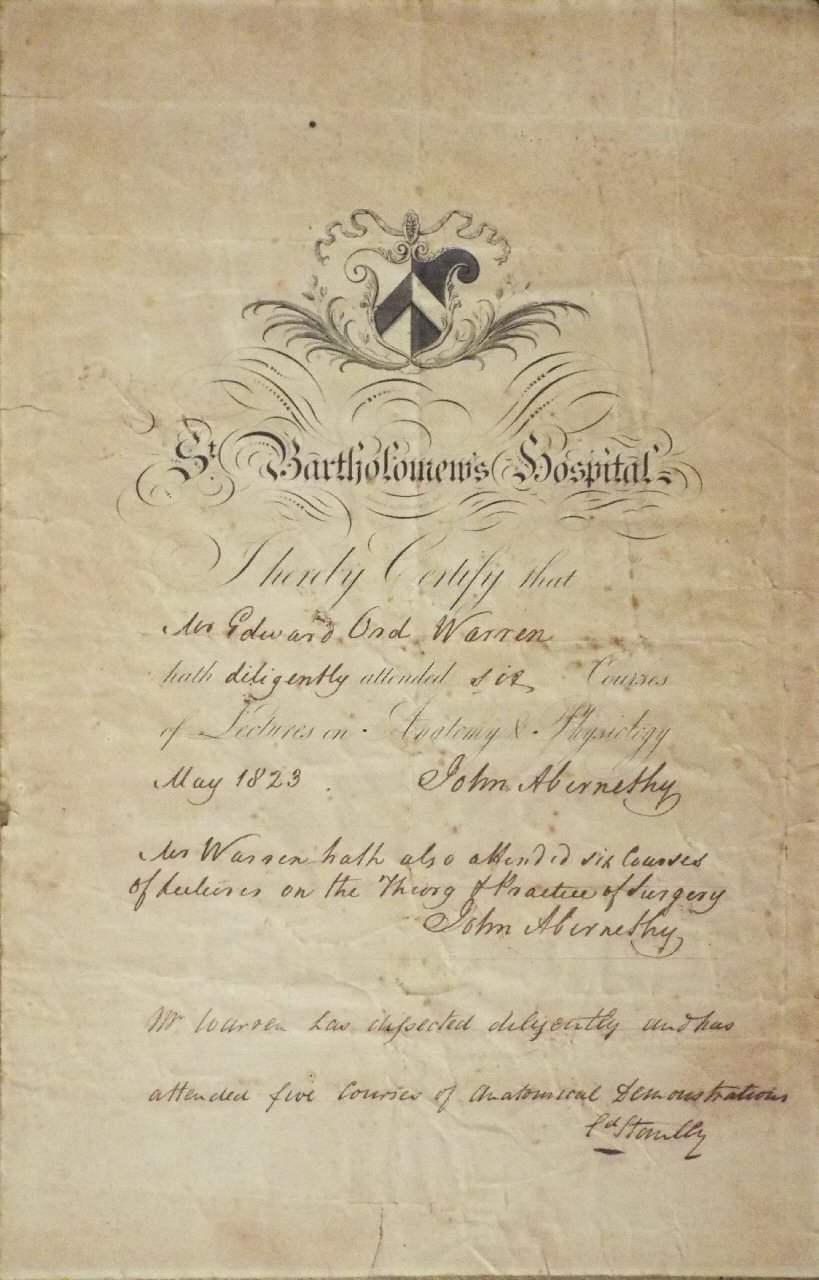 St. Bartholomew's Hospital.
I hereby Certify that
Mr Edward Ord Warren
hath diligently attended six Courses
of Lectures on Anatomy & Physiology
May 1823. John Abernethy
Mr Warren hath also attended six Courses
of Lectures on the Theory & Practice of Surgery
John Abernethy
Mr Warren has dissected diligently and has
attended five Courses of Anatomical Demonstrations
Ed Stanley